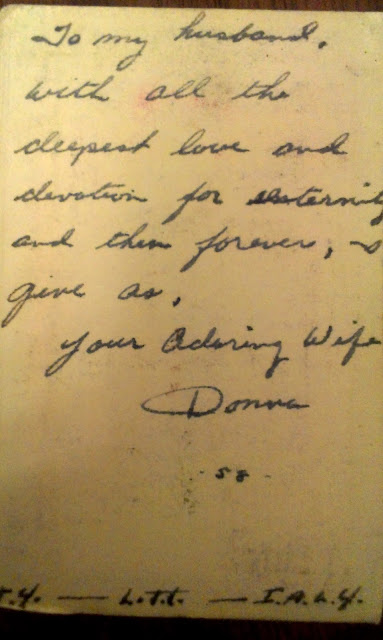 To my husband,
with all the
deepest love and
devotion for esternity
and then forever, I
give as,
your Adoring Wife
Donna
- 58 -
T.Y. — L.T.T. — I.A.L.Y.